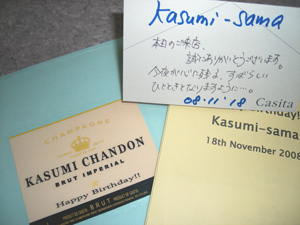 Kasumi-sama
本日のご来店、
誠にありがとうございます。
今夜が心に残る、すばらしい
ひとときとなりますように…。
08.11.18 Casita
CHAMPAGNE
KASUMI CHANDON
BRUT IMPERIAL
Happy Birthday!!
BRUT
irthday!!
Kasumi-sama
18th November 2008